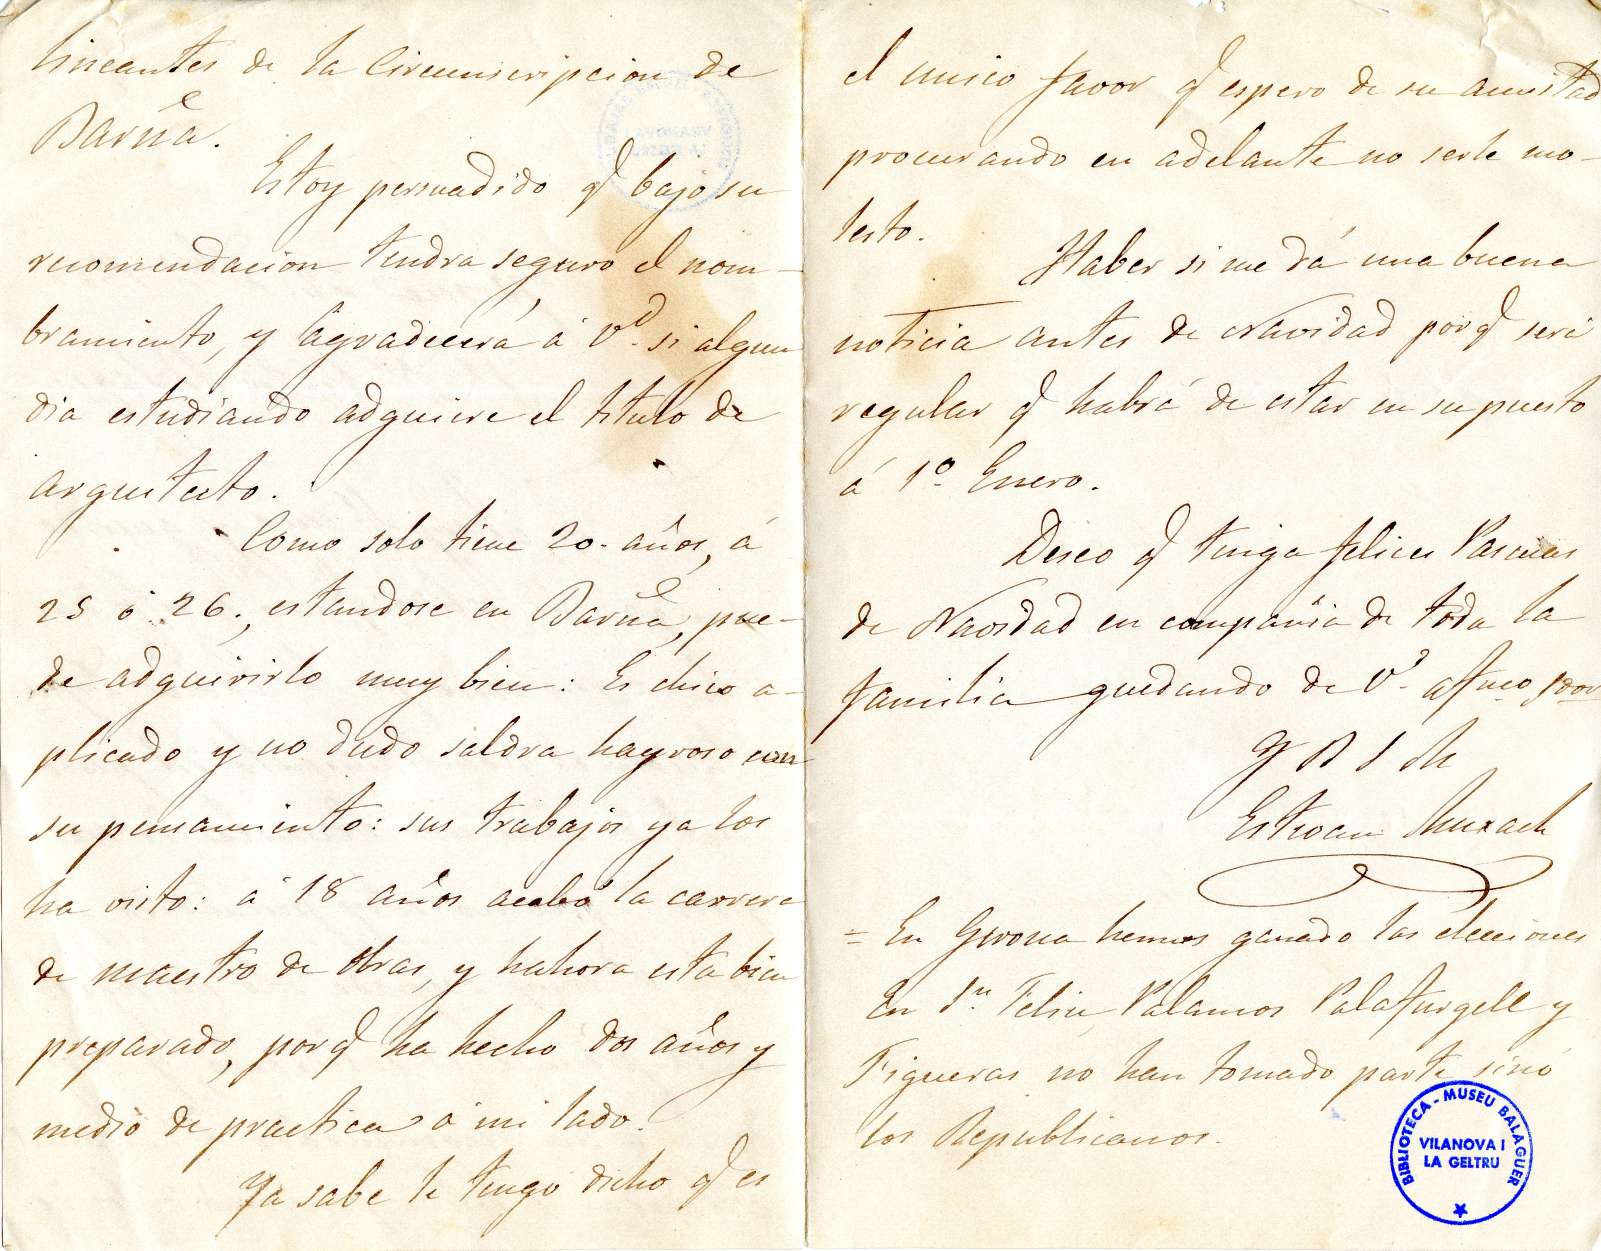 lineantes de la Circunscripcion de
Barña.
Estoy persuadido q bajo su
recomendacion tendra seguro el nom-
bramiento, y agradecerá á Vd. si algun
dia estudiando adquiere el titulo de
arquitecto.
Como solo tiene 20 años, á
25 ó 26., estandose en Barña, pue-
de adquirirlo muy bien: Es chico a-
plicado y no dudo saldra hayroso con
su pensamiento: sus trabajos ya los
ha visto: á 18 años acabó la carrera
de maestro de obras, y hahora esta bien
preparado, porq ha hecho dos años y
medio de practica á mi lado.
Ya sabe le tengo dicho q es
el unico favor q espero de su amistad
procurando en adelante no serle mo-
lesto.
Haber si me dá una buena
noticia antes de Navidad porq será
regular q habrá de estar en su puesto
á 1º Enero.
Deseo q tenga felices Pascuas
de Navidad en compañia de toda la
familia quedando de Vd. afmo. sdor
Q B S M
Estevan Muxach
= En Gerona hemos ganado las elecciones
En Sn. Feliu, Palamos Palafurgell y
Figueras no han tomado parte sinó
los Republicanos.
BIBLIOTECA - MUSEU BALAGUER
VILANOVA I
LA GELTRU